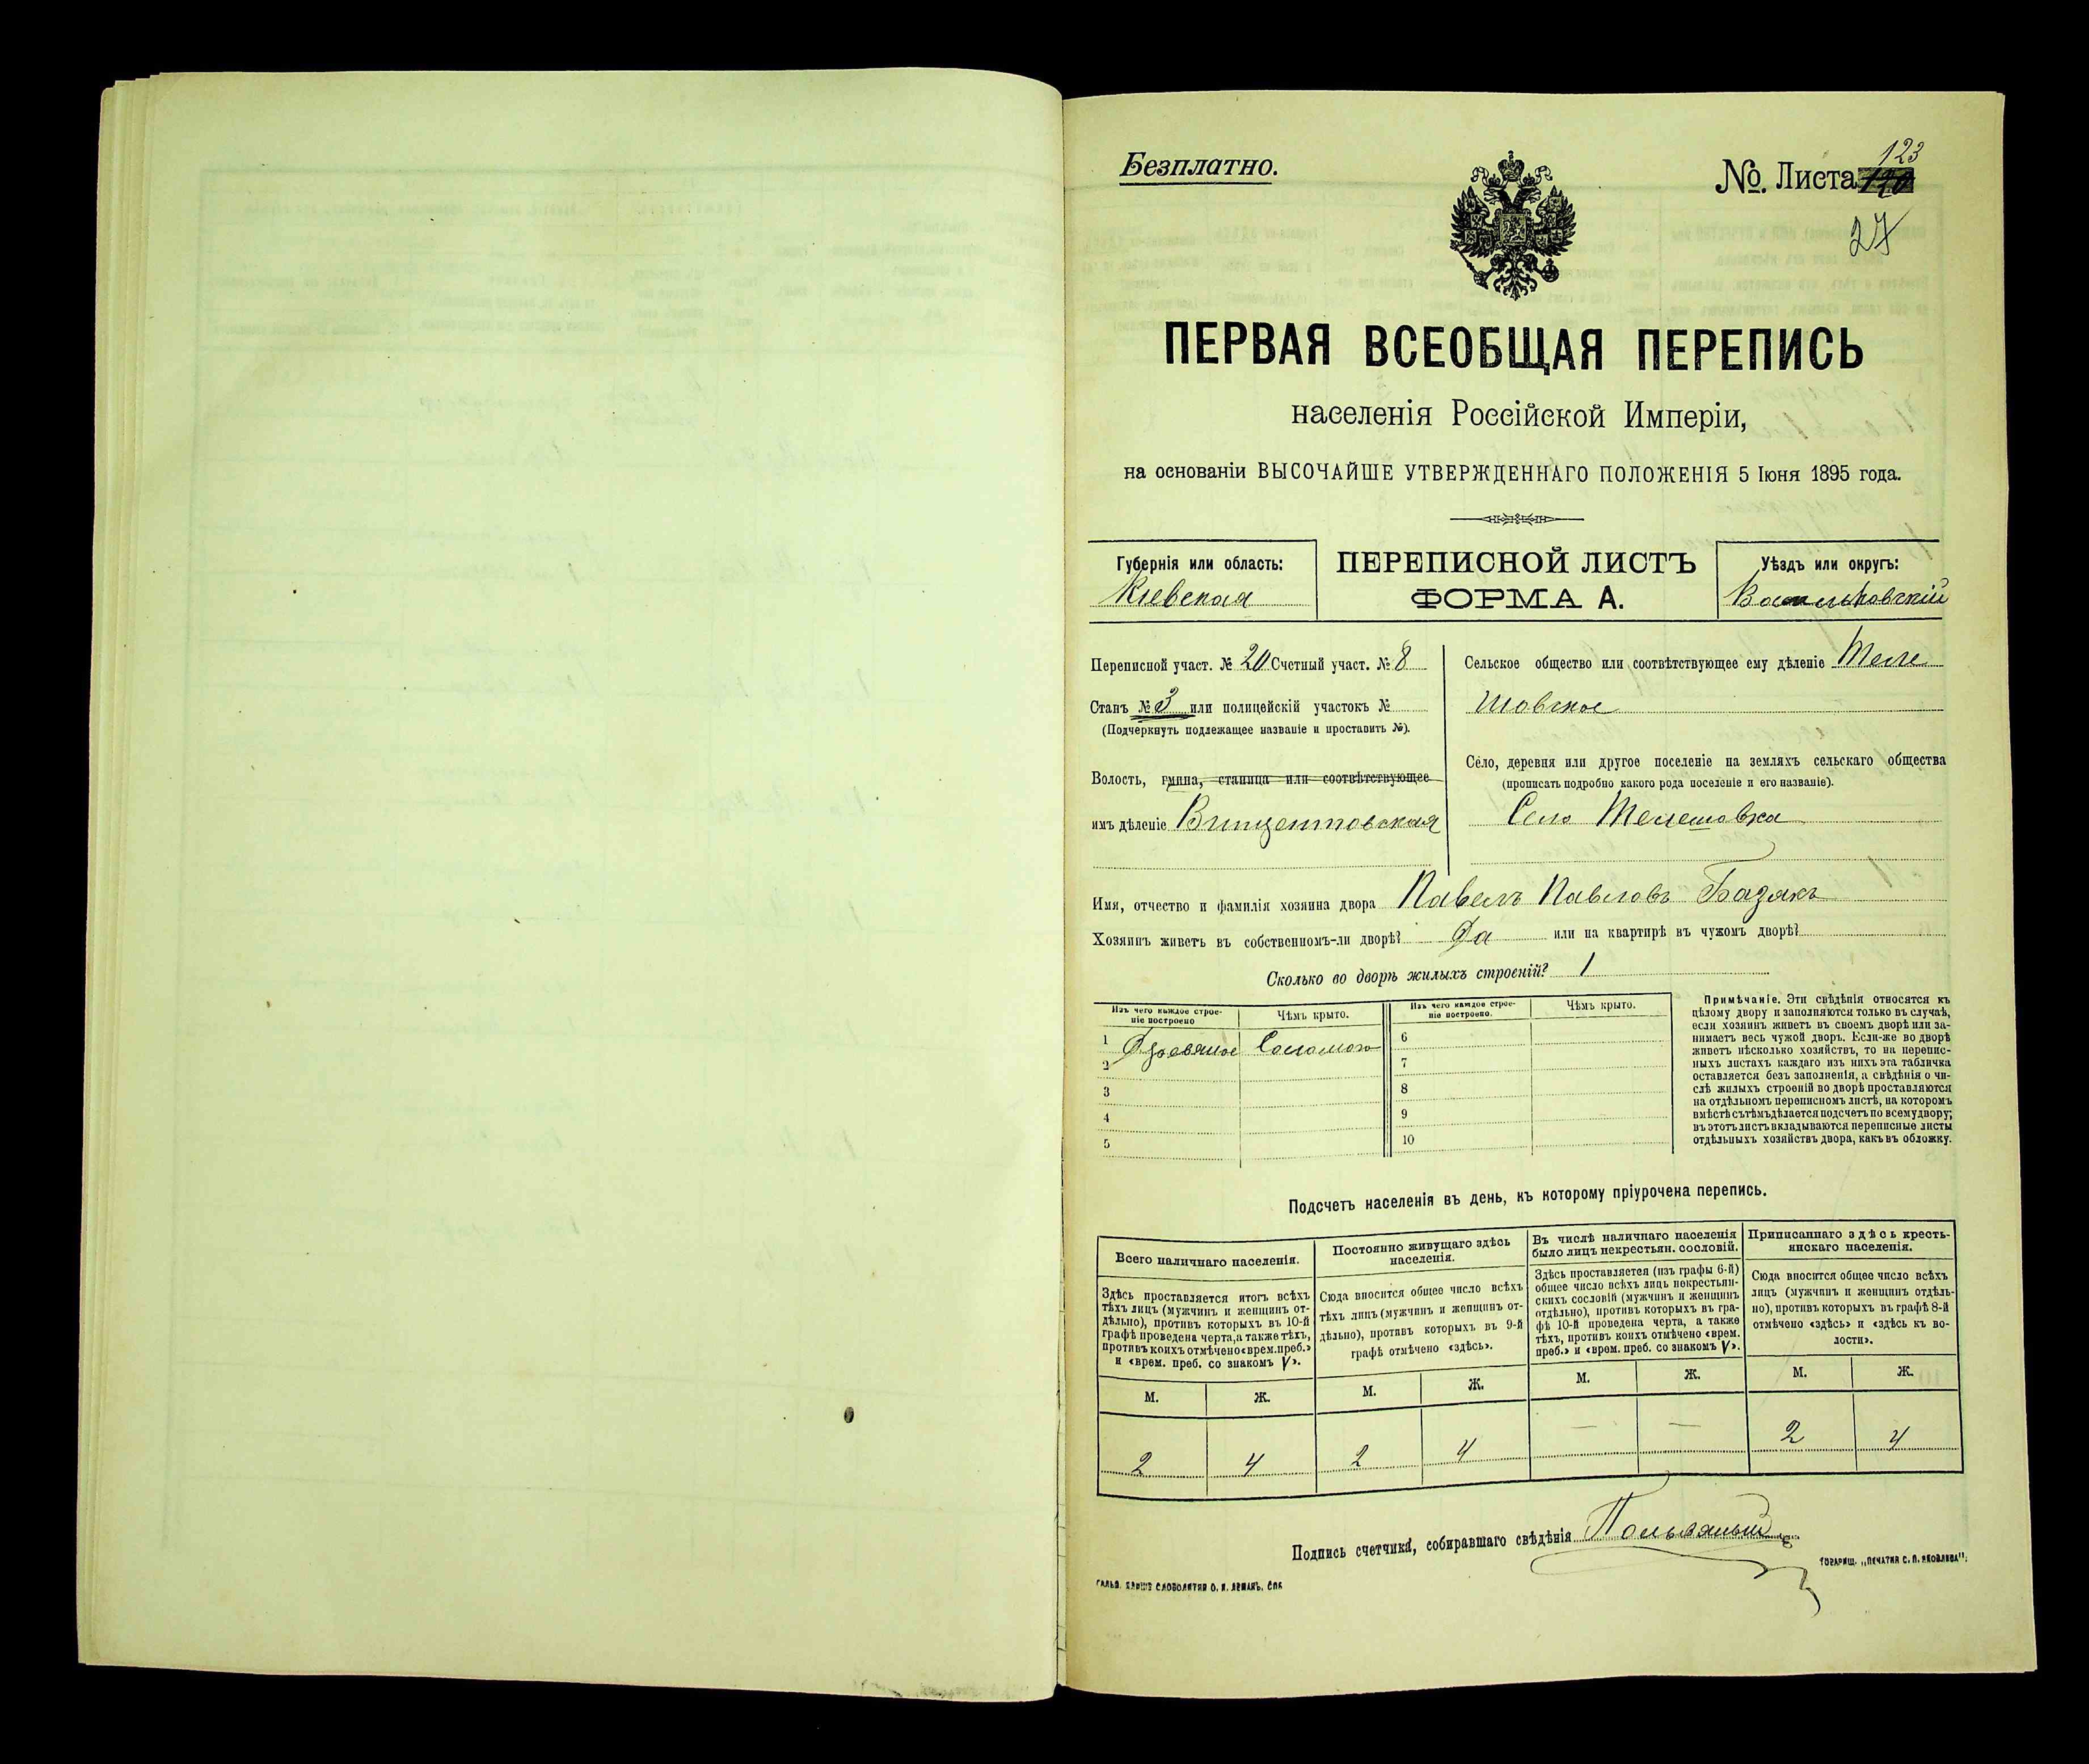 Безплатно.
№. Листа 123
27
ПЕРВАЯ ВСЕОБЩАЯ ПЕРЕПИСЬ
населенія Россійской Имперіи,
на основаніи ВЫСОЧАЙШЕ УТВЕРЖДЕННАГО ПОЛОЖЕНІЯ 5 Іюня 1895 года.
Губернія или область:
Кіевская
ПЕРЕПИСНОЙ ЛИСТЪ
ФОРМА А.
Уѣздъ или округъ:
Васильковскій
Переписной участ. № 20 Счетный участ. № 8
Станъ № 3 или полицейскій участокъ №
(Подчеркнуть подлежащее названіе и проставить №).
Волость, гмина, станица или соотвѣтствующее
имъ дѣленіе Винцентовская
Сельское общество или соотвѣтствующее ему дѣленіе Теле
шовское
Село, деревня или другое поселеніе на земляхъ сельскаго общества
(прописать подробно какого рода поселеніе и его названіе).
Село Телешовка
Имя, отчество и фамилія хозяина двора Павелъ Павловъ Базакъ
Хозяинъ живетъ въ собственномъ-ли дворѣ? Да или на квартирѣ въ чужомъ дворѣ?
Сколько во дворѣ жилыхъ строеній? 1
Изъ чего каждое строе-
ніе построено
Чѣмъ крыто.
Изъ чего каждое строе-
ніе построено.
Чѣмъ крыто.
1 Деревяное Соломою
2
3
4
5
6
7
8
9
10
Примѣчаніе. Эти свѣдѣнія относятся къ
цѣлому двору и заполняются только въ случаѣ,
если хозяинъ живетъ въ своемъ дворѣ или за-
нимаетъ весь чужой дворъ. Если-же во дворѣ
живетъ нѣсколько хозяйствъ, то на перепис-
ныхъ листахъ каждаго изъ нихъ эта табличка
оставляется безъ заполненія, а свѣдѣнія о чи-
слѣ жилыхъ строеній во дворѣ проставляются
на отдѣльномъ переписномъ листѣ, на которомъ
вмѣстѣ съ тѣмъ дѣлается подсчетъ по всему двору;
въ этотъ листъ вкладываются переписные листы
отдѣльныхъ хозяйствъ двора, какъ въ обложку.
Подсчетъ населенія въ день, къ которому пріурочена перепись.
Всего наличнаго населенія.
Здѣсь проставляется итогъ всѣхъ
тѣхъ лицъ (мужчинъ и женщинъ от-
дѣльно), противъ которыхъ въ 10-й
графѣ проведена черта, а также тѣхъ,
противъ коихъ отмѣчено «врем. преб.»
и «врем. преб. со знакомъ V».
Постоянно живущаго здѣсь
населенія.
Сюда вносится общее число всѣхъ
тѣхъ лицъ (мужчинъ и женщинъ от-
дѣльно), противъ которыхъ въ 9-й
графѣ отмѣчено «здѣсь».
Въ числѣ наличнаго населенія
было лицъ некрестьян. сословій.
Здѣсь проставляется (изъ графы 6-й)
общее число всѣхъ лицъ некрестьян-
скихъ сословій (мужчинъ и женщинъ
отдѣльно), противъ которыхъ въ гра-
фѣ 10-й проведена черта, а также
тѣхъ, противъ коихъ отмѣчено «врем.
преб.» и «врем. преб. со знакомъ V».
Приписаннаго здѣсь кресть-
янскаго населенія.
Сюда вносится общее число всѣхъ
лицъ (мужчинъ и женщинъ отдѣль-
но), противъ которыхъ въ графѣ 8-й
отмѣчено «здѣсь» и «здѣсь къ во-
лости».
М. Ж. М. Ж. М. Ж. М. Ж.
2 4 2 4 — — 2 4
Подпись счетчика, собиравшаго свѣдѣнія
ТОВАРИЩ. „ПЕЧАТНЯ С. П. ЯКОВЛЕВА“.